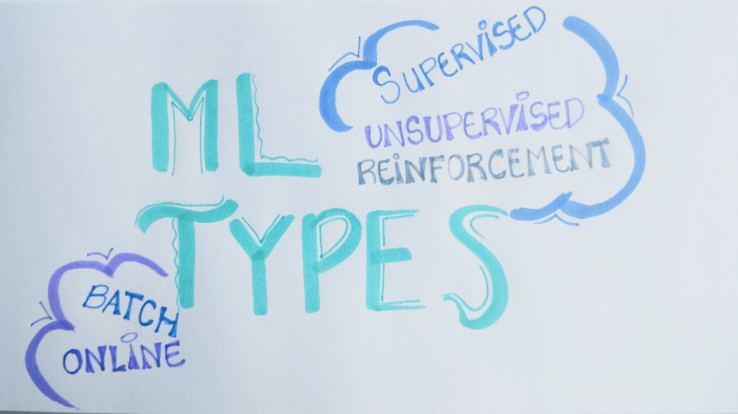 ML
TYPES
SUPERVISED
UNSUPERVISED
REINFORCEMENT
BATCH
ONLINE